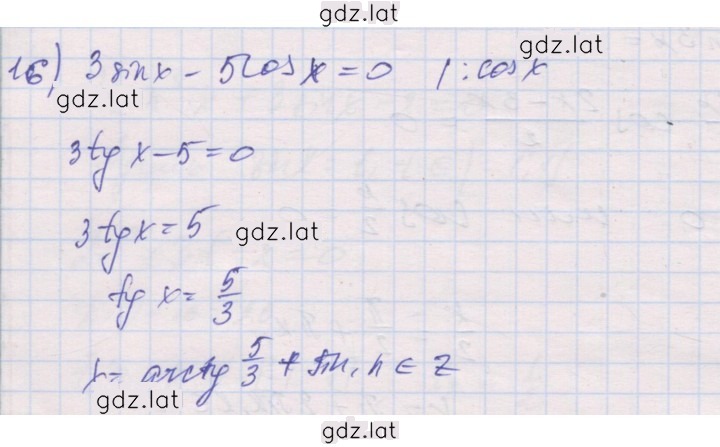 gdz.lat
gdz.lat
1б) 3 sin x - 5 cos x = 0 | : cos x
gdz.lat
3 tg x - 5 = 0
3 tg x = 5
gdz.lat
tg x = 5/3
x = arctg 5/3 + πn, n ∈ Z
gdz.lat
gdz.lat